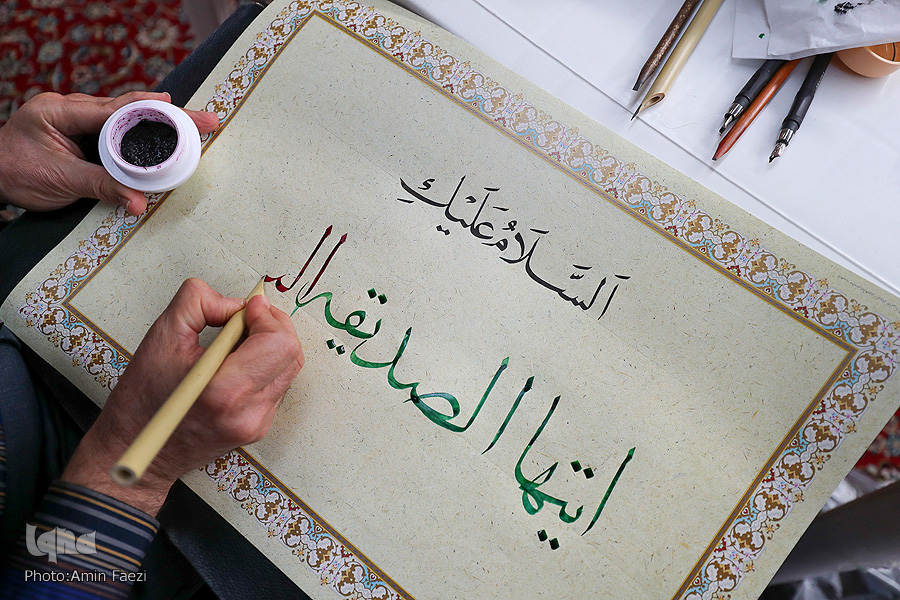 اَلسَّلَامُ عَلَيْكِ
ايتها الصديقه
iqna
Photo:Amin Faezi